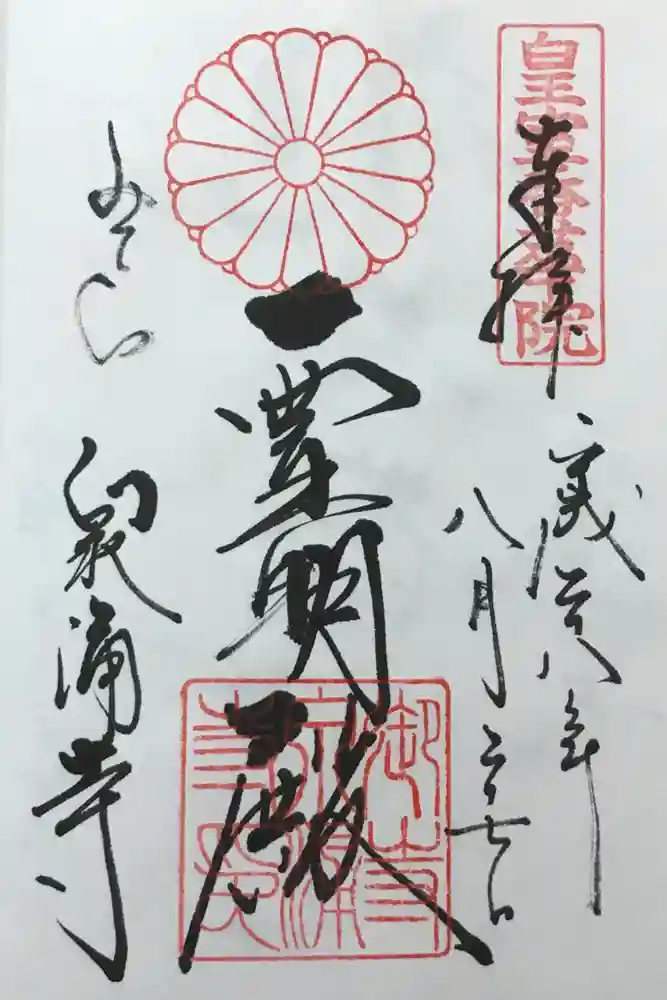 皇室香華院
奉拝
平成二十八年
八月二十七日
霊明殿
御寺
泉涌
寺印
みてら
泉涌寺